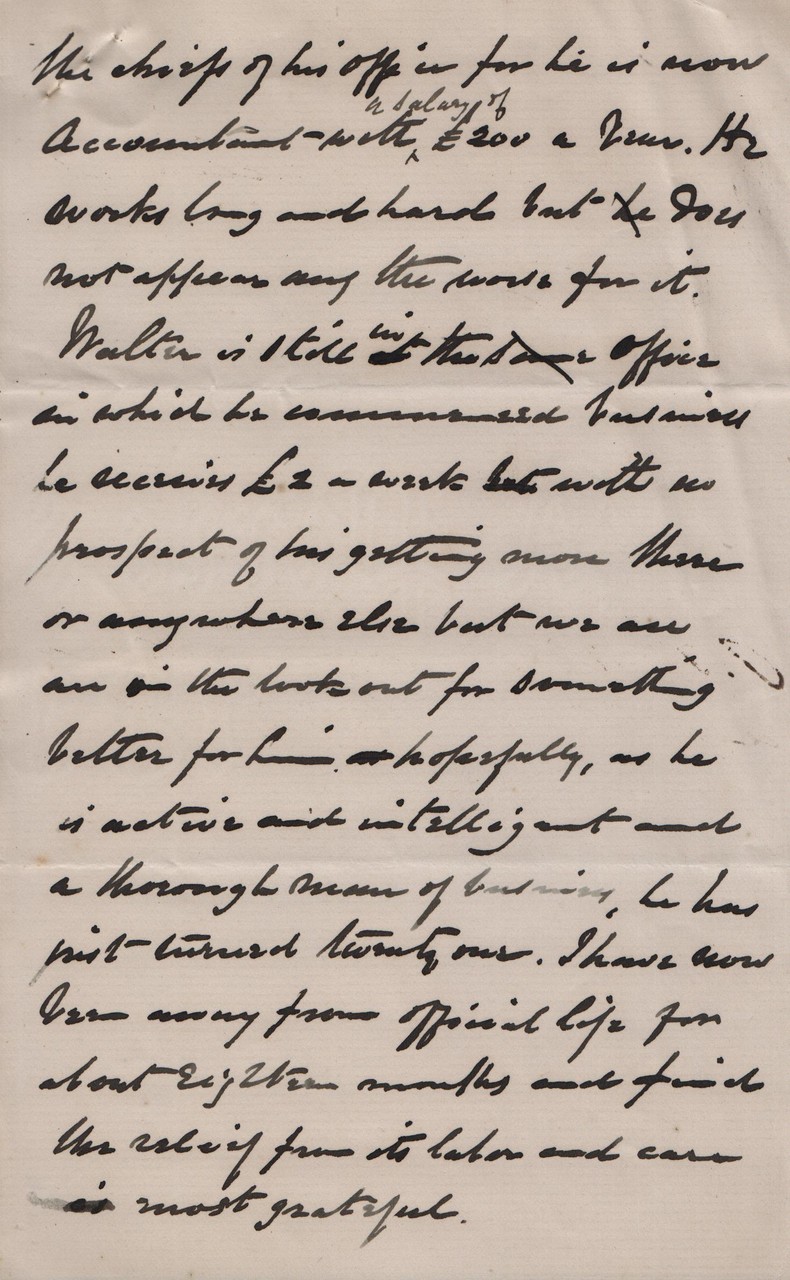 the chiefs of his office for he is now
a salary of
Accountant with £200 a year. He
works long and hard but he does
not appear any the worse for it.
Walter is still in the same office
in which he commenced business
he receives £2 a week but with no
prospect of his getting more there
or anywhere else but we are
are on the look out for something
better for him hopefully, as he
is active and intelligent and
a thorough man of business, he has
just turned twenty one. I have now
been away from official life for
about Eighteen months and find
the relief from its labor and care
is most grateful.